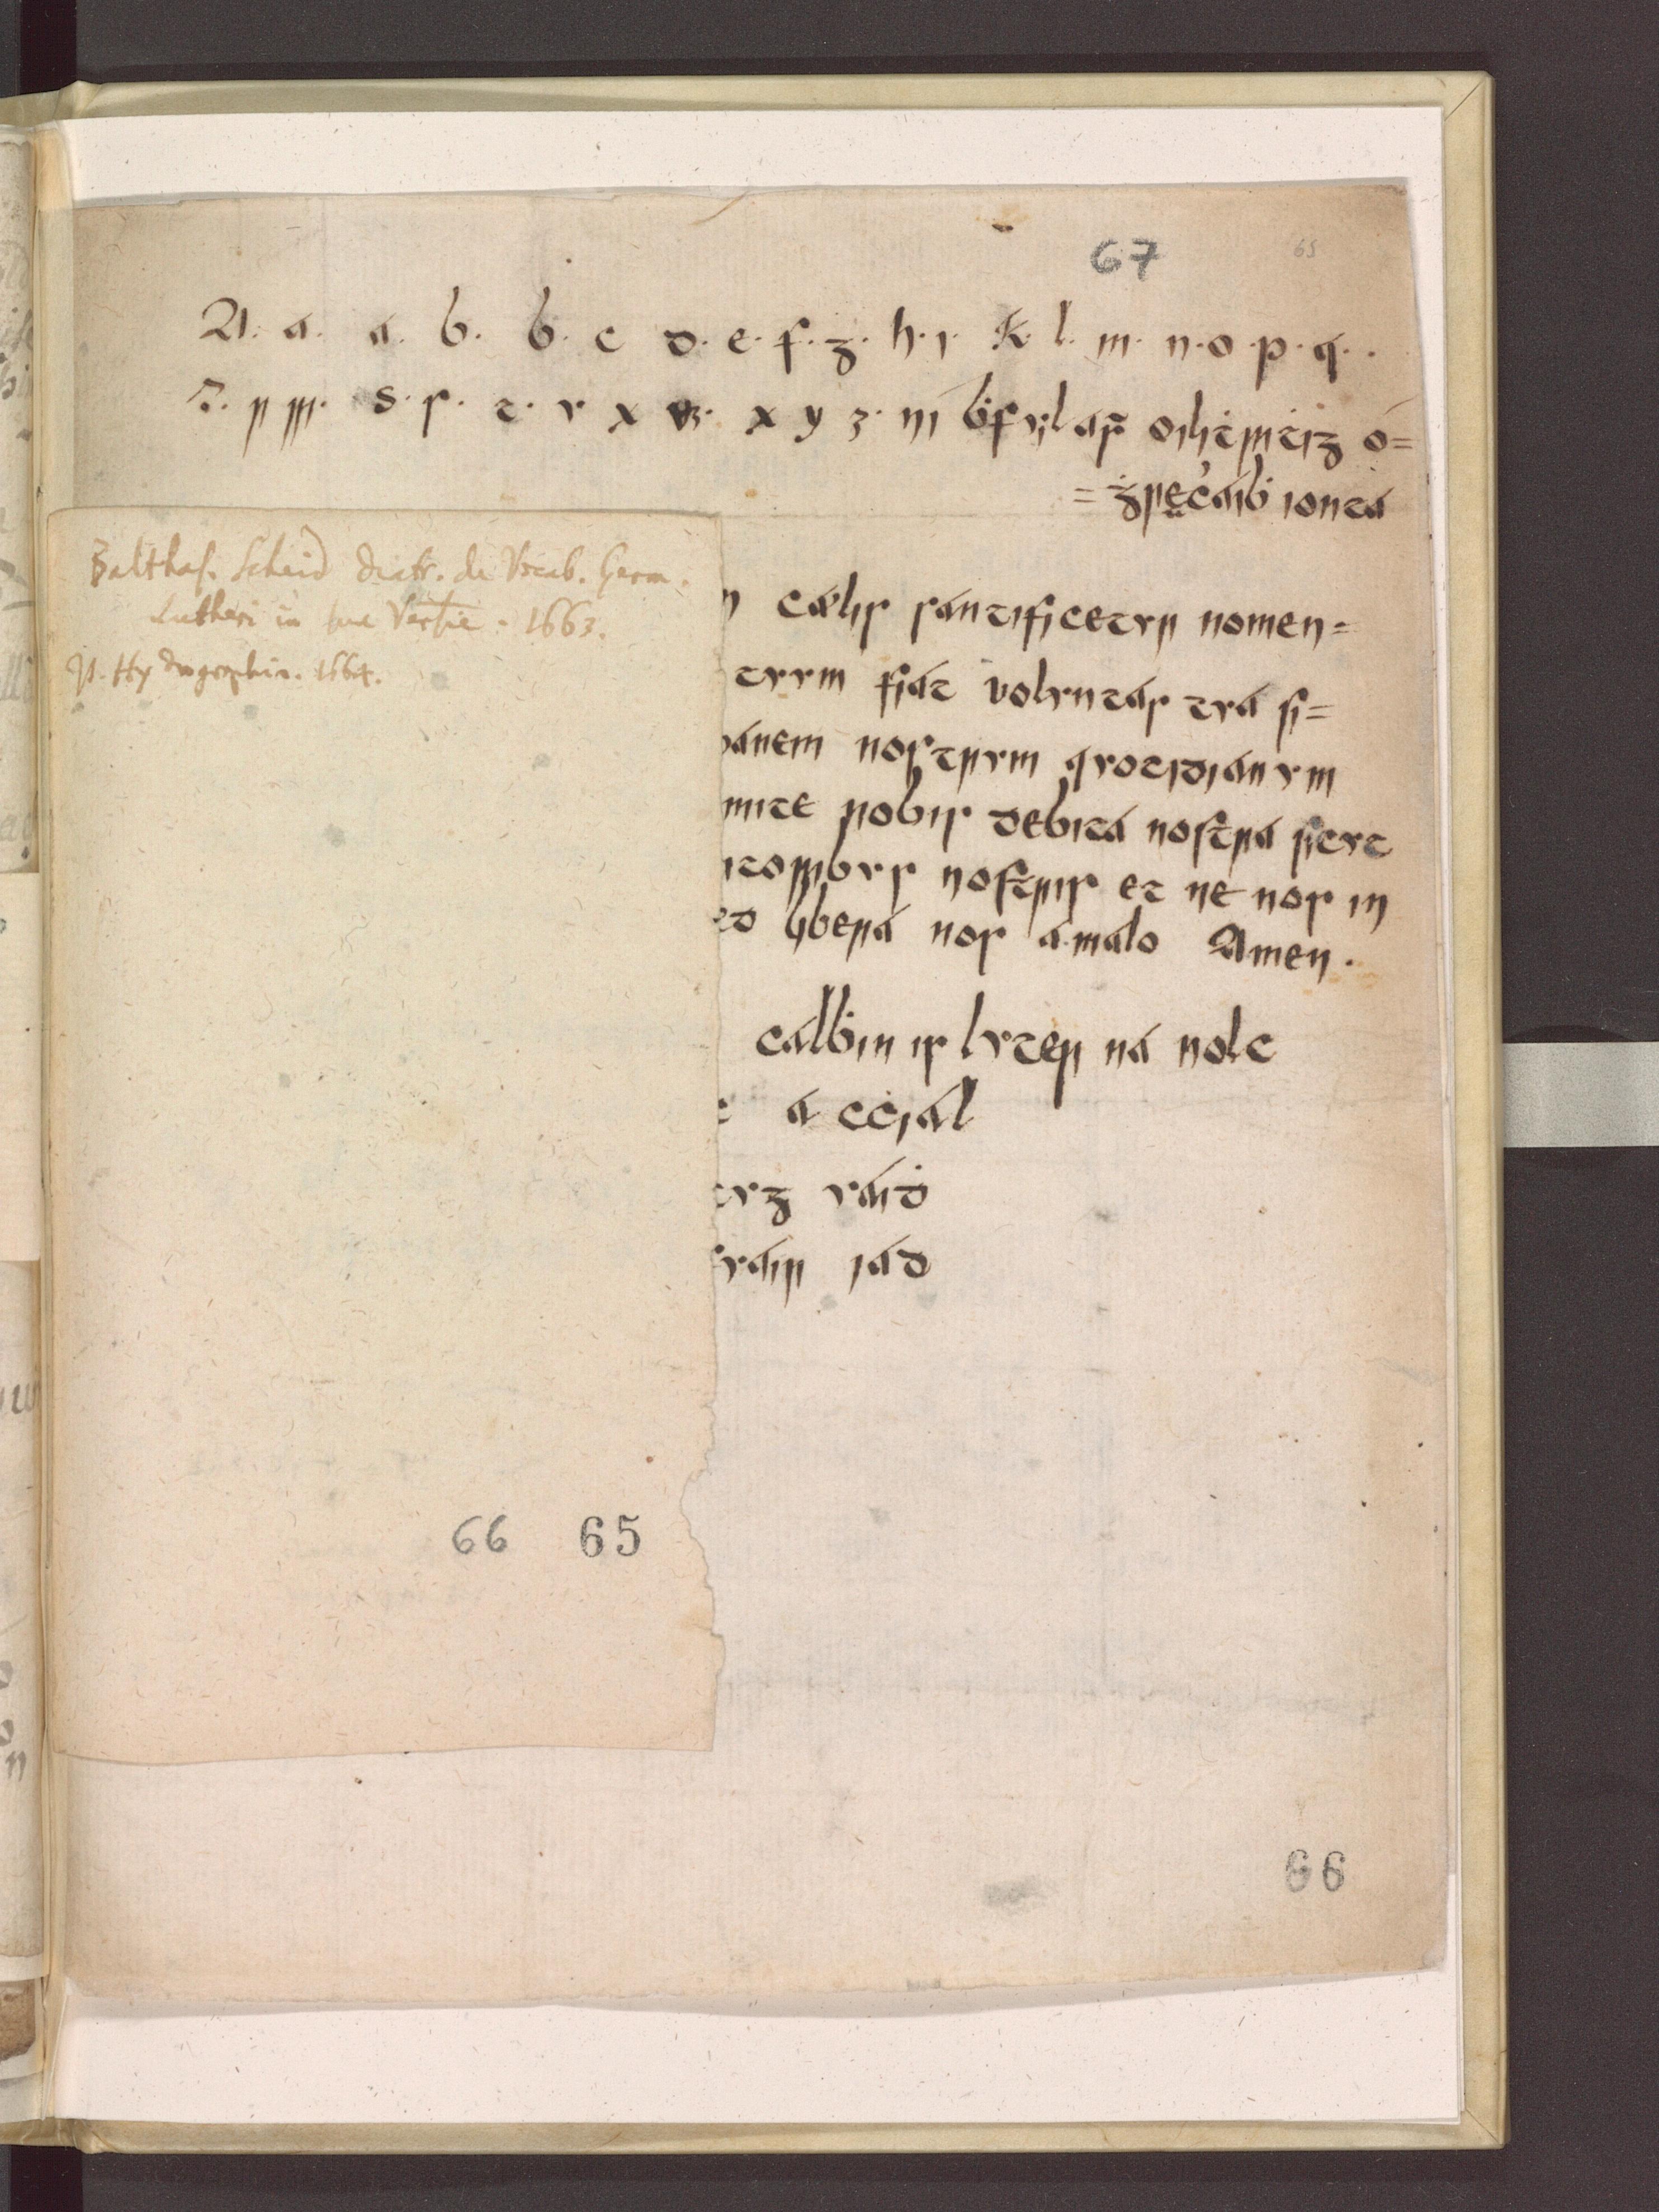 67
65
A. a. a. b. b. c d. e. f. g. h. i. K. l. m. n. o. p. q. .
s. s. t. u x x y z. ní
= ionta
Balthas. Scheid diatr. de Vocab. Germ.
Lutheri in sua Versie. 1663.
It. Hydrographia. 1664.
cælis santificetur nomen=
tuum fiat voluntas tua si=
panem nostrum quotidianum
mite nobis debita nostra sicut
itoribus nostris et ne nos in
ed libera nos a malo Amen.
calḃin is luter na nolc
a cċial
ug uaiḋ
uair iad
66 65
66